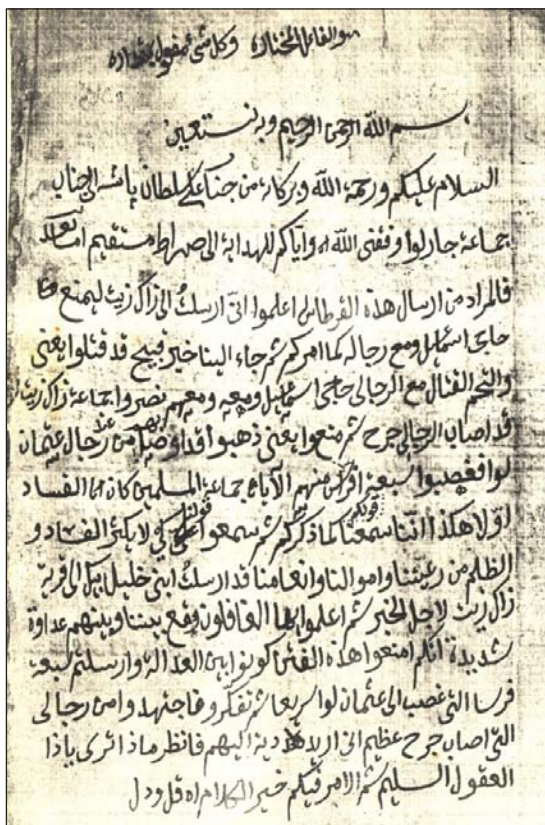 هو الفاعل المختار وكل شيء
بسم الله الرحمن الرحيم وبه نستعين
السلام عليكم ورحمة الله وبركاته من جناب سلطان پاشه الى جناب
جماعة جارلوا وفقني الله وآياكم للهداية الى صراط مستقيم اما بعد
فالمراد من ارسال هذه القرطاس اعلموا انّي ارسلتُ الى زاك زيت ليمنع
حاجى اسماعيل ومع رجاله كما امركم ثم جاء الينا خبر قبيح قد قتلوا يعني
والتحم القتال مع الرجالي حاجى اسماعيل ومعه ومعهم نصروا جماعة زاك زيت
قد اصاب الرجالي جرح ثم منعوا يعني ذهبوا من رجال عثمان
لوا فغصبوا سبعة افراس منهم الآ يا جماعة المسلمين كان الفساد
اوّلا هكذا انّنا سمعنا قولكم كما ذكركم ثم سمعوا قولنا لا يكثر الفساد و
الظلم من رعيتنا واموالنا وانعامنا قد ارسلتُ ابني خليل بيك الى قرية
زاك زيت لاجل الخبر ثم اعلموا ايها الغافلون وقع بيننا وبينهم عداوة
شديدة انكم امنعوا هذه الفتن كونوا بين العدالة وارسلتم سبعة
فرسا التي غصب الى عثمان لوا سريعا ثم تفكّروا فاجتهدوا من رجالي
التي اصاب جرح عظيم اليهم فانظر ماذا ترى يا ذا
العقول السليم ثم الامر فيكم خير الكلام ما قل ودل